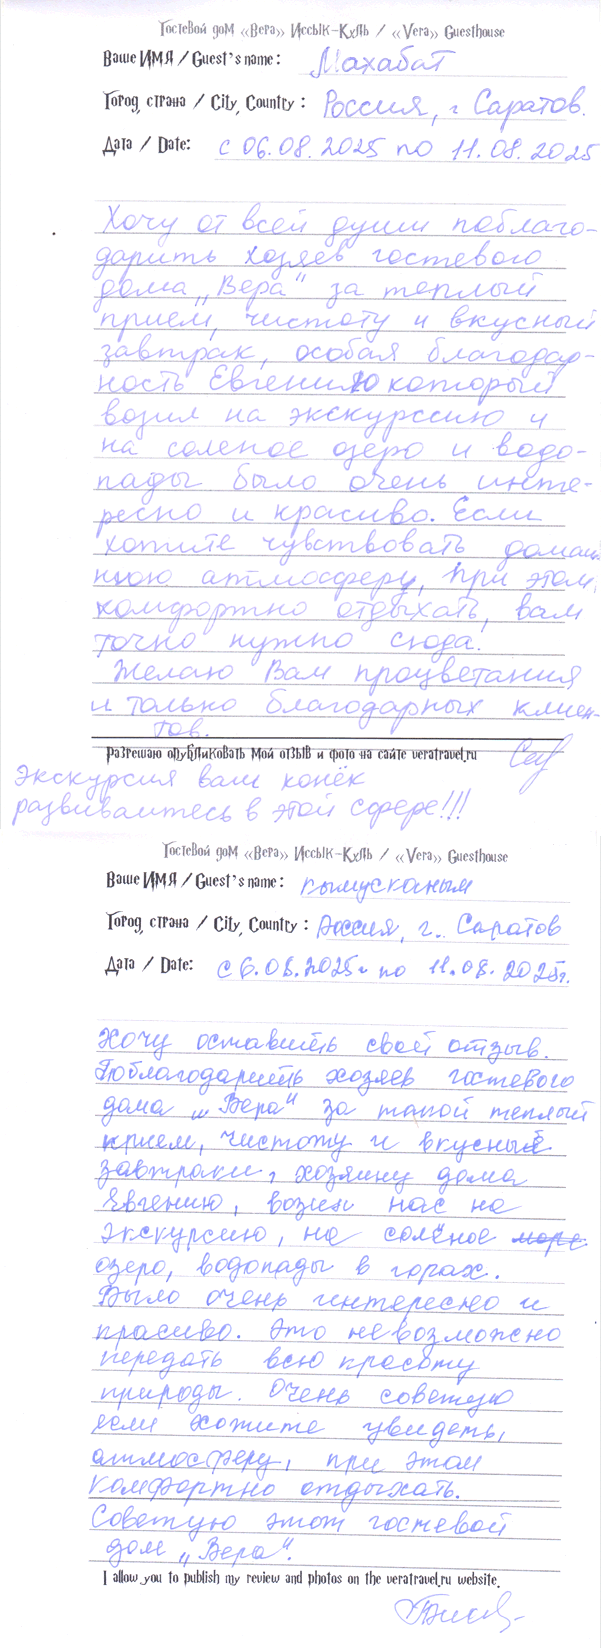 Гостевой дом «Вера» Иссык-Куль / «Vera» Guesthouse
Ваше ИМЯ / Guest's name: Махабат
Город, страна / City, Country: Россия, г Саратов.
Дата / Date: с 06.08.2025 по 11.08.2025
Хочу от всей души поблаго-
дарить хозяев гостевого
дома „Вера" за теплый
прием, чистоту и вкусный
завтрак, особая благодар-
ность Евгению который
возил на экскурссию и
на соленое озеро и водо-
пады было очень инте-
ресно и красиво. Если
хотите чувствовать домаш
нюю атмосферу, при этом,
комфортно отдыхать, вам
точно нужно сюда.
Желаю Вам процветания
и только благодарных клиен-
тов.
Разрешаю опубликовать мой отзыв и фото на сайте veratravel.ru
Экскурсия ваш конёк
развивайтесь в этой сфере!!!
Гостевой дом «Вера» Иссык-Куль / «Vera» Guesthouse
Ваше ИМЯ / Guest's name: Кымусканым
Город, страна / City, Country: Россия, г. Саратов
Дата / Date: с 6.08.2025г по 11.08.2025г.
Хочу оставить свой отзыв.
Поблагодарить хозяев гостевого
дома „Вера" за такой теплый
прием, чистоту и вкусный
завтраки, хозяину дома
Евгению, возил нас на
экскурсию, на солёное море
озеро, водопады в горах.
Было очень интересно и
красиво. Это невозможно
передать всю красоту
природы. Очень советую
если хотите увидеть,
атмосферу, при этом
комфортно отдыхать.
Советую этот гостевой
дом „Вера".
I allow you to publish my review and photos on the veratravel.ru website.